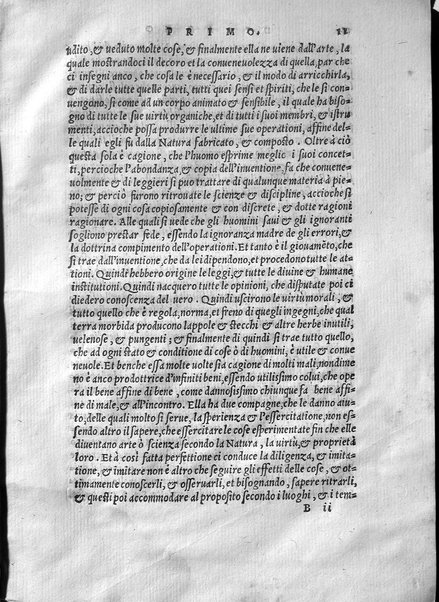 PRIMO. 11
udito, & veduto molte cose, & finalmente ella ne viene dall'arte, la
quale mostrandoci il decoro et la conuenevolezza di quella, par che
ci insegni anco, che cosa le è necessario, & il modo di arricchirla,
& di darle tutte quelle parti, tutti quei sensi et spiriti, che le si con
uengono, sì come ad un corpo animato & sensibile, il quale ha biso
gno di tutte le sue virtù organiche, et di tutti i suoi membri, & istru
menti, accioche possa produrre le ultime sue operationi, affine del=
le quali egli fu dalla Natura fabricato, & composto. Oltre à ciò
questa sola è cagione, che l'huomo esprime meglio i suoi concet=
ti, percioche l'abondanza, & copia dell'inuentione, fa che conuene=
uolmente & di leggieri si puo trattare di qualunque materia à pie=
no; & perciò furono ritrouate le scienze & discipline, accioche si
potesse di ogni cosa copiosamente & con discrete, & dotte ragioni
ragionare. Alle quali si uede che gli huomini saui & gli ignoranti
sogliono prestar fede, essendo la ignoranza madre de gli errori, &
la dottrina compimento dell'operationi. Et tanto è il giouameto, che
si trae dall'inuentione, che da lei dipendono, et procedono tutte le at
tioni. Quindi hebbero origine le leggi, & tutte le diuine & humane
institutioni. Quindi nacquero tutte le opinioni, che disputate poi ci
diedero conoscenza del uero. Quindi uscirono le uirtù morali, &
tutto quello che è regola, norma, et freno di quegli ingegni, che qual
terra morbida producono lappole & stecchi & altre herbe inutili,
uelenose, & pungenti; & finalmente di quindi si trae tutto quello,
che ad ogni stato & conditione di cose ò di huomini, è utile & conue
neuole. Et benche essa molte uolte sia cagione di molti mali, nondime
no è anco produttrice d'infiniti beni, essendo utilissimo colui, che ope
ra il bene affine di bene, come dannosissimo chiunque fa bene affi=
ne di male, & all'incontro. Ella ha due compagne, che le danno aiu=
to, delle quali molto si serue, la sperienza & l'essercitatione, non es=
sendo altro il sapere, che essercitare le cose esperimentate fin che elle
diuentano arte ò scienza secondo la Natura, la uirtù, & proprietà
loro. Et à così fatta perfettione ci conduce la diligenza, & imita=
tione, & imitare non è altro che seguir gli effetti delle cose, & ot=
timamente conoscerli, & osseruarli, et bisognando, sapere ritrarli,
& questi poi accommodare al proposito secondo i luoghi, & i tem=
B ii